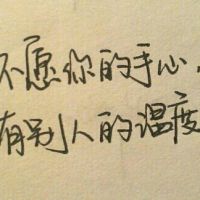 不愿你的手心，
有别人的温度